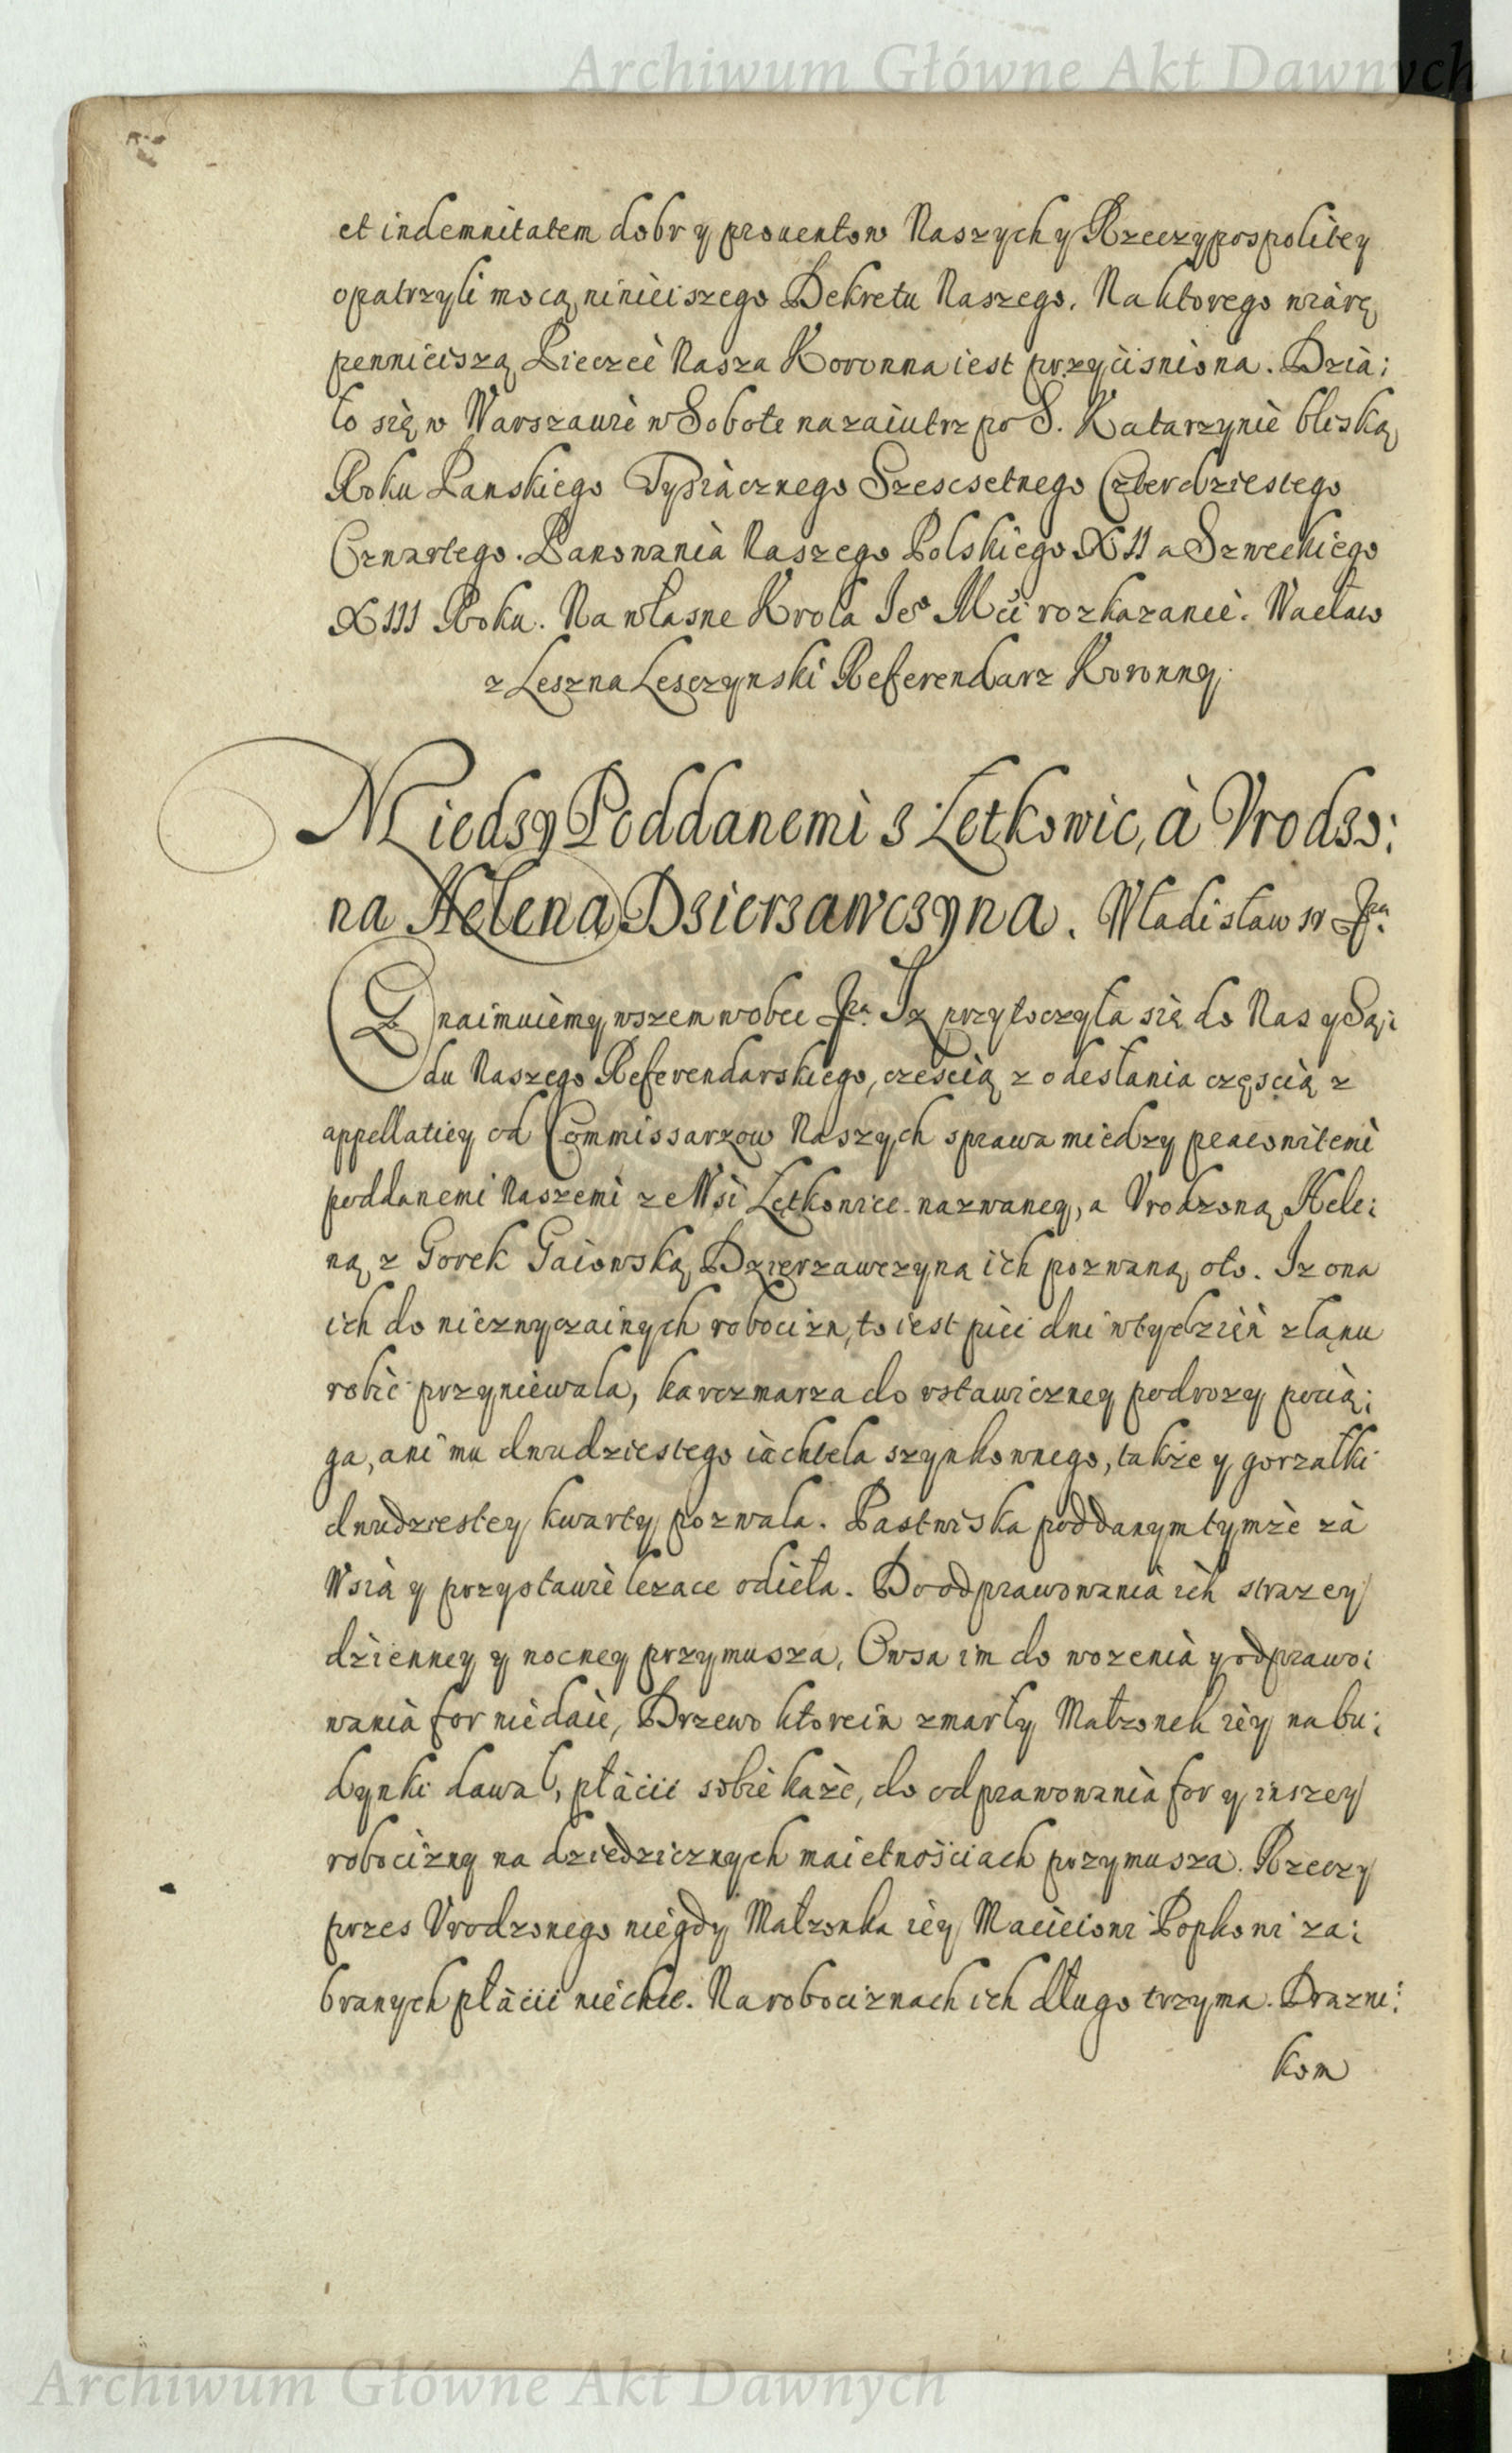 Archiwum Główne Akt Dawnych
et indemnitatem dobr y prouentow Naszych y Rzeczypospolitey
opatrzyli mocą ninieiszego Dekretu Naszego. Na ktorego wiarę
pewnieiszą Pieczęć Nasza Koronna iest przyciśniona. Dzia:
ło się w Warszawie w Sobotę nazaiutrz po S. Katarzynie bliską
Roku Panskiego Tysiącznego Szescsetnego Czterdziestego
Czwartego. Panowania Naszego Polskiego XII a Szweckiego
XIII Roku. Na własne Krola Jeo Mći rozkazanie. Wacław
z Leszna Lesczynski Referendarz Koronny.
Miedsy Poddanemi s Letkowic, à Vrodso:
na Helena Dsiersawcsyna. Władisław IV Pra.
Oznaimuiemy wszem wobec Pra. Iz przytoczyła się do Nas y Są:
du Naszego Referendarskiego, cześcią z odesłania częscią z
appellatiey od Commissarzow Naszych sprawa miedzy pracowitemi
poddanemi Naszemi ze Wsi Lętkowice nazwaney, a Vrodzoną Hele:
ną z Gorek Gaiowską Dzierzawczyną ich pozwaną oto. Iz ona
ich do niezwyczainych robocizn, to iest pięć dni w tydzień z łanu
robić przyniewala, karczmarza do vstawiczney podrozy pocią:
ga, ani mu dwudziestego iachtela szynkownego, także y gorzałki
dwudziestey kwarty pozwala. Pastwiska poddanym tymże zà
Wsią y przy stawie lezące odieła. Do odprawowania ich strazey
dzienney y nocney przymusza, Owsa im do wozenia y odprawo:
wania for nie daie, Drzewo ktore im zmarły Małzonek iey na bu:
dynki dawał, płacić sobie każe, do odprawowania for y inszey
robocizny na dziedzicznych maietnościach przymusza. Rzeczy
przes Vrodzonego niegdy Małzonka iey Macieiowi Popkowi za:
branych płacić niechce. Na robociznach ich długo trzyma. Drazni:
kom
Archiwum Główne Akt Dawnych